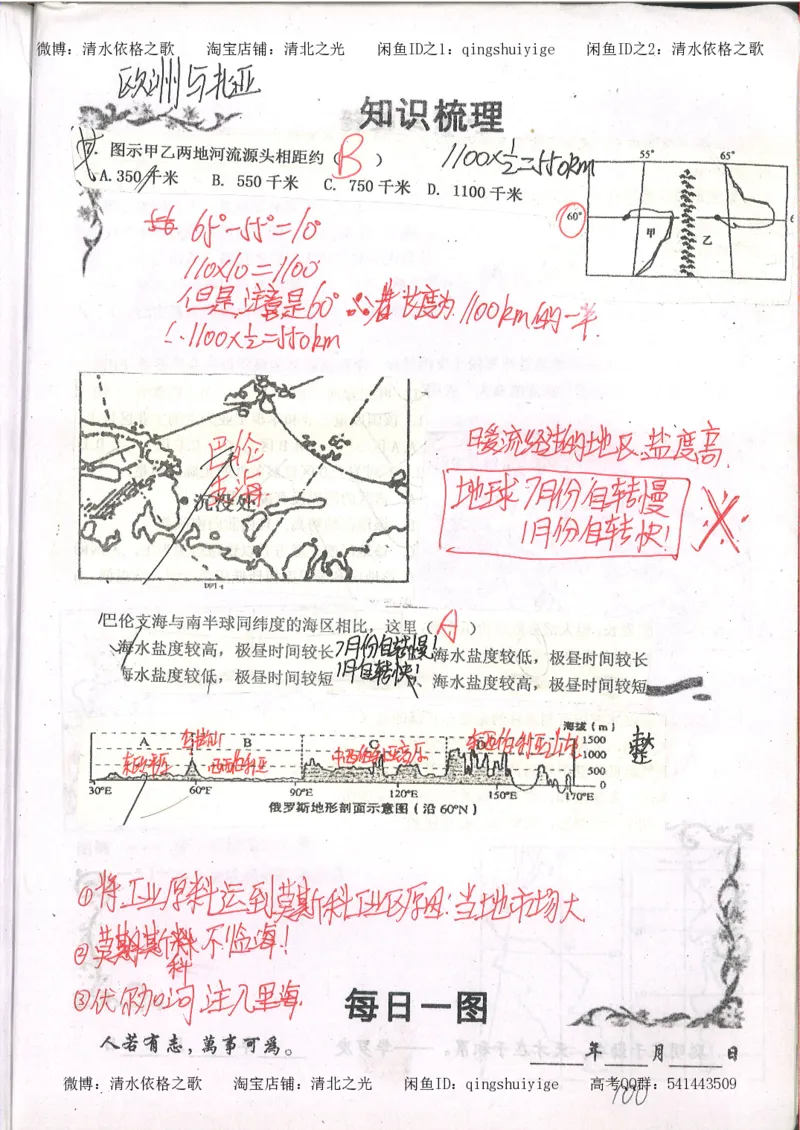 微博：清水依格之歌 淘宝店铺：清北之光 闲鱼ID之1：qingshuiyige 闲鱼ID之2：清水依格之歌
欧洲与北亚
知识梳理
图示甲乙两地河流源头相距约（ B ）
1100×1/2=550km
A.350千米 B. 550千米 C. 750千米 D. 1100千米
55° 65°
60°
甲 乙
65°-55°=10°
110×10=1100
但是注意是60° ∴长度为1100km的一半
∴1100×1/2=550km
巴伦
支海
沉没处
暖流经过的地区盐度高
地球7月份自转慢
1月份自转快!
巴伦支海与南半球同纬度的海区相比，这里（ A ）
海水盐度较高，极昼时间较长 7月份自转慢! 海水盐度较低，极昼时间较长
海水盐度较低，极昼时间较短 1月自转快! 海水盐度较高，极昼时间较短
海拔（m）
A B C
东欧平原 西西伯利亚 中西伯利亚高原 东西伯利亚山地
1500
1000
500
0
30°E 60°E 90°E 120°E 150°E 170°E
俄罗斯地形剖面示意图（沿60°N）
①将工业原料运到莫斯科工业区原因:当地市场大
②莫斯科不临海!
③伏尔加河注入里海
每日一图
人若有志，萬事可為。
年 月 日
微博：清水依格之歌 淘宝店铺：清北之光 闲鱼ID：qingshuiyige 高考QQ群：541443509
100